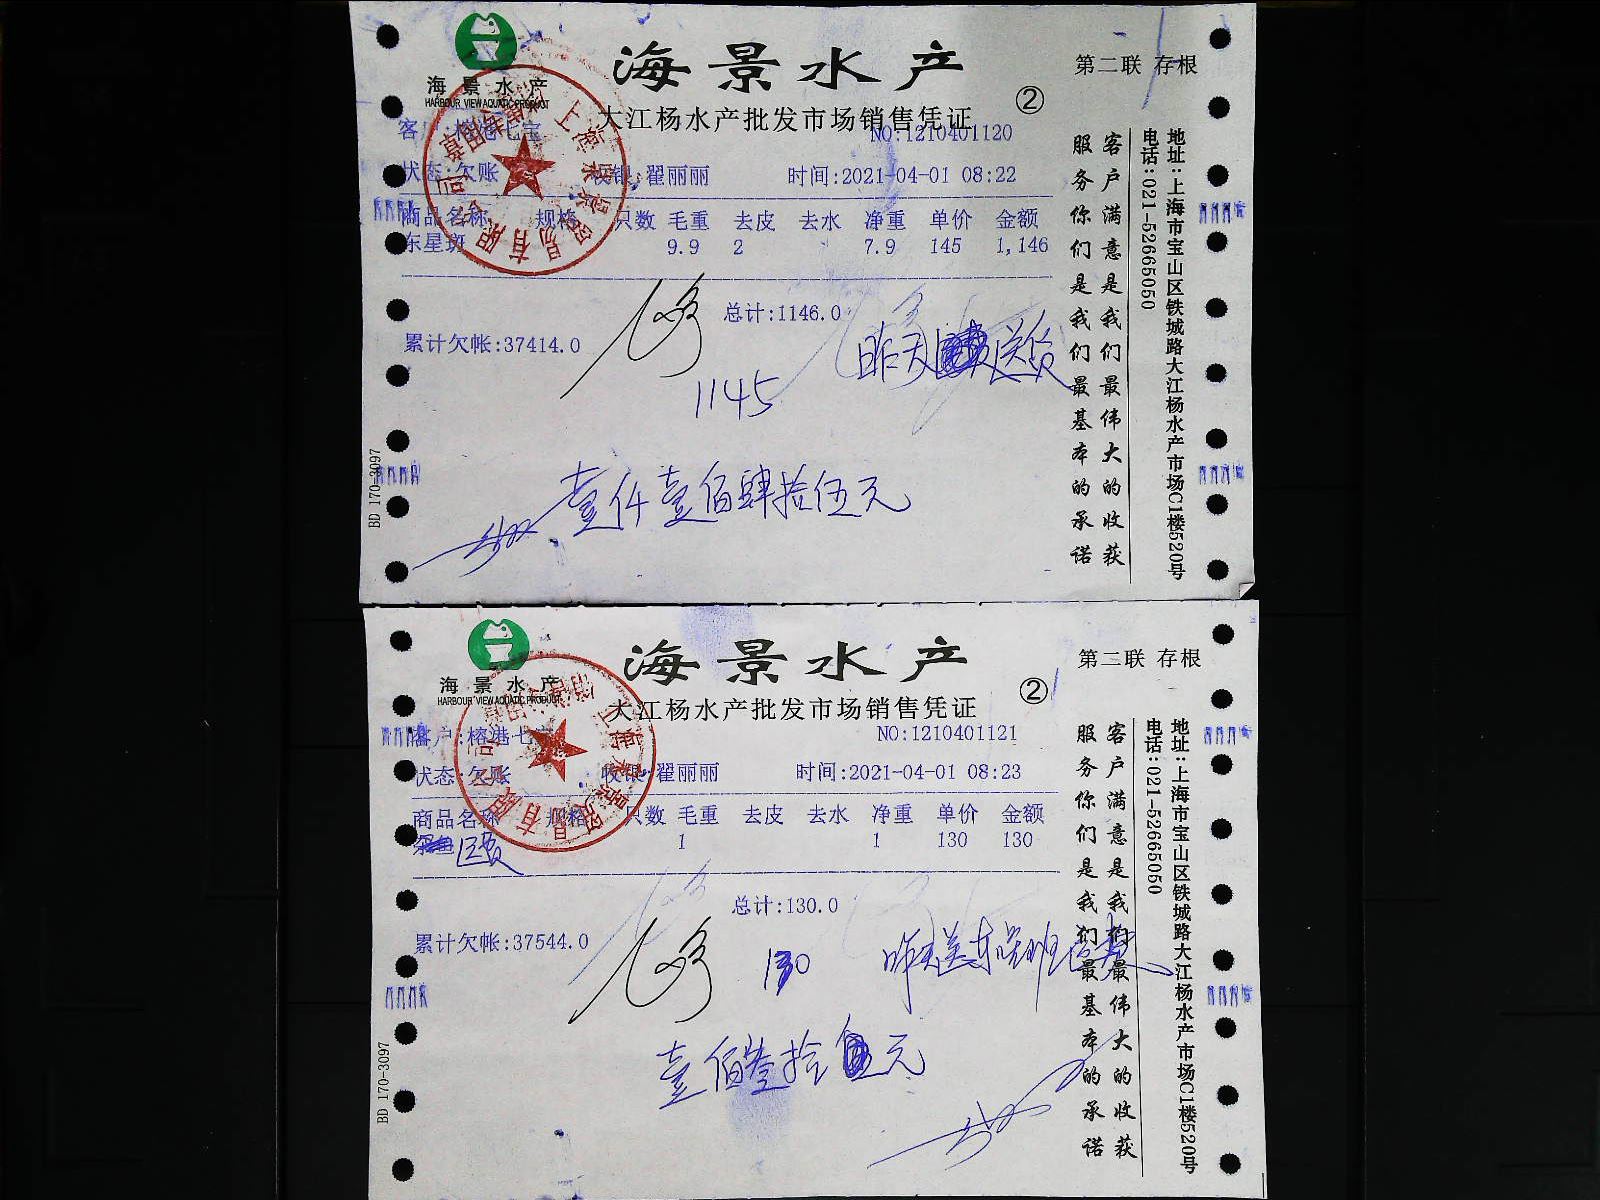 海景水产
第二联 存根
海景水产
HARBOUR VIEW AQUATIC PRODUCT
②
大江杨水产批发市场销售凭证
NO:1210401120
状态:欠账 收银:翟丽丽 时间:2021-04-01 08:22
商品名称 规格 只数 毛重 去皮 去水 净重 单价 金额
东星斑 9.9 2 7.9 145 1,146
总计:1146.0
累计欠帐:37414.0
昨天 送货
1145
壹仟壹佰肆拾伍元
BD 170-3097
客户满意是我们最伟大的收获
服务你们是我们最基本的承诺
地址:上海市宝山区铁城路大江杨水产市场C1楼520号
电话:021-52665050
海景水产
第二联 存根
海景水产
HARBOUR VIEW AQUATIC PRODUCT
②
大江杨水产批发市场销售凭证
客户:榕港七
NO:1210401121
状态:欠账 收银:翟丽丽 时间:2021-04-01 08:23
商品名称 规格 只数 毛重 去皮 去水 净重 单价 金额
1 1 130 130
总计:130.0
累计欠帐:37544.0
130
昨天送东星班
壹佰叁拾 元
BD 170-3097
客户满意是我们最伟大的收获
服务你们是我们最基本的承诺
地址:上海市宝山区铁城路大江杨水产市场C1楼520号
电话:021-52665050